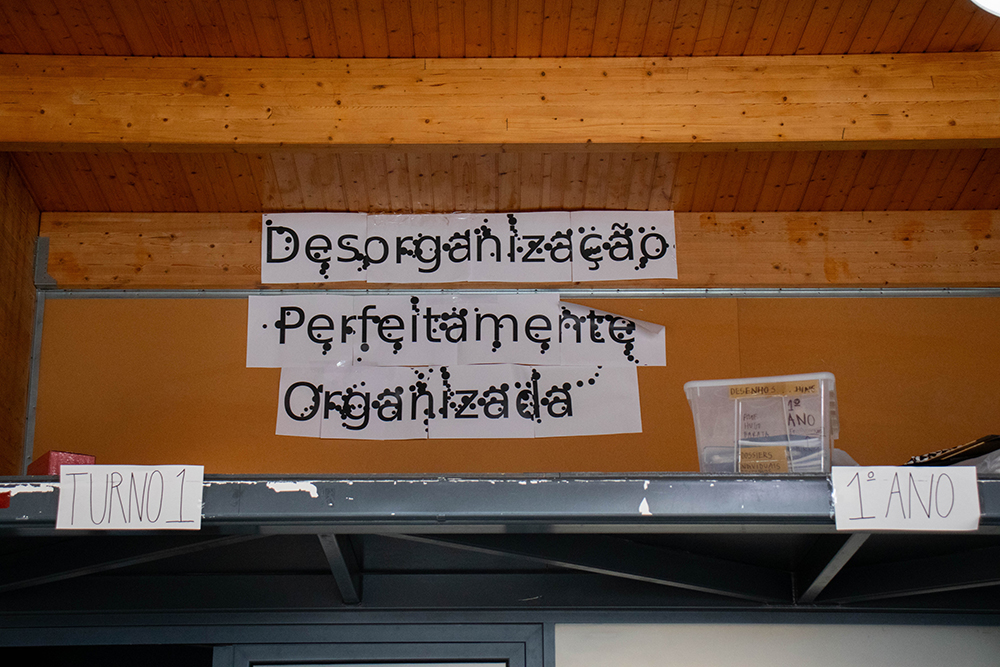 Desorganização
Perfeitamente
Organizada
DESENHOS
1º
ANO
TURNO 1
1º ANO